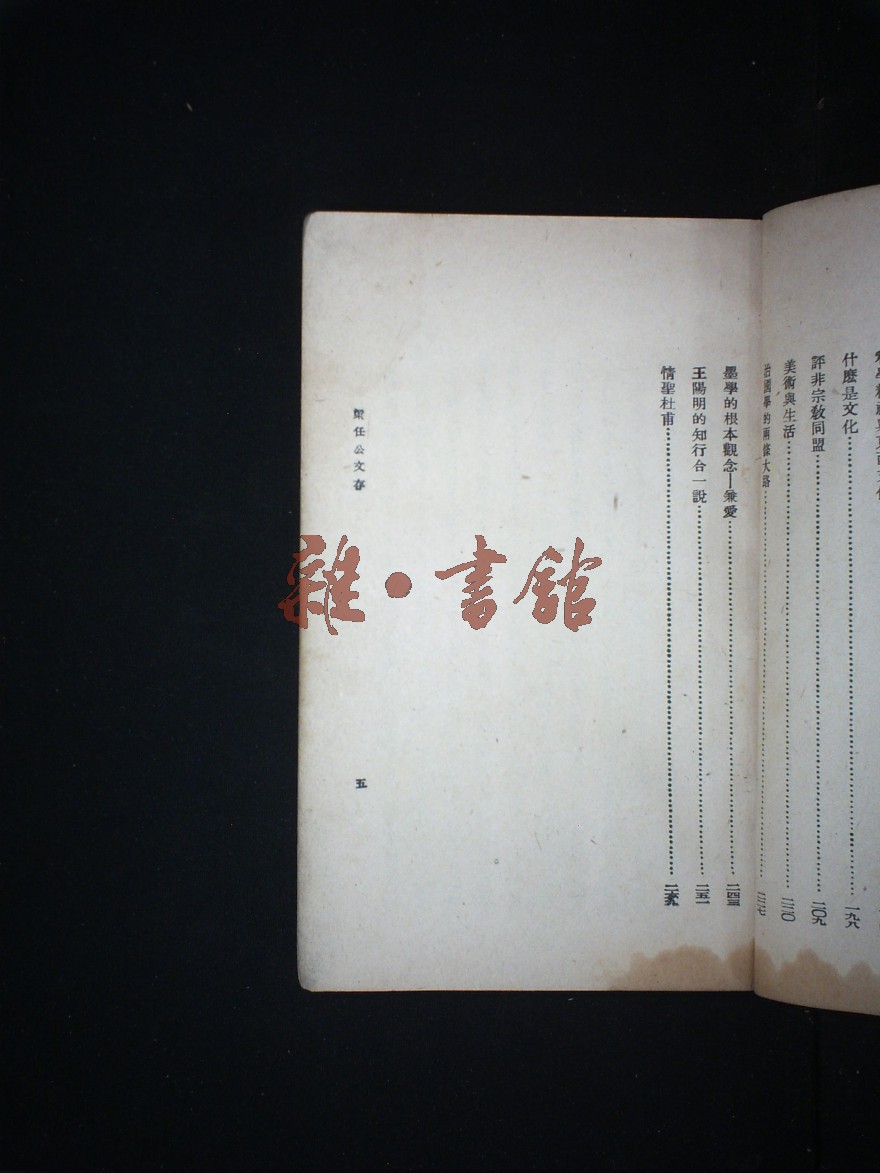 什麽是文化…………一九八
評非宗敎同盟…………二〇九
美術與生活…………二二〇
治國學的兩條大路…………二二七
墨學的根本觀念——兼愛…………二四三
王陽明的知行合一說…………二五一
情聖杜甫…………
梁任公文存
五
雜·書館